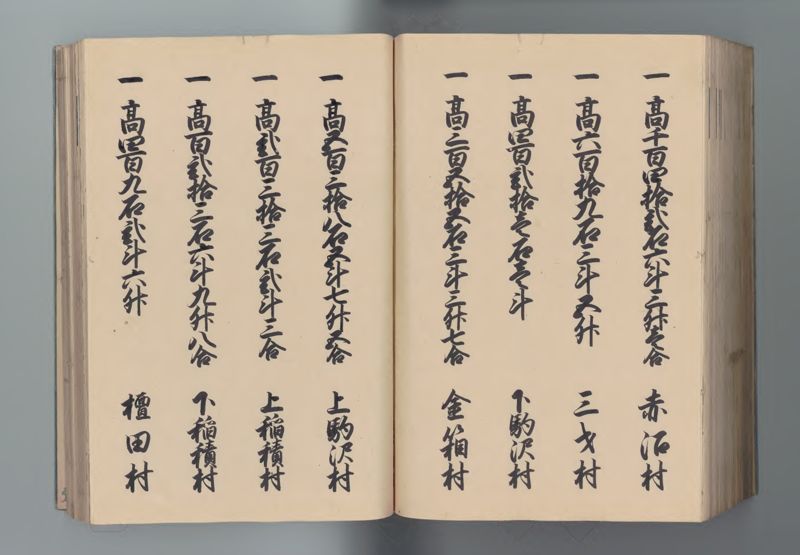 一 高千百四拾弐石六斗三升壱合 赤沼村
一 高六百拾九石三斗五升 三才村
一 高四百弐拾壱石壱斗 下駒沢村
一 高三百五拾五石三斗三升七合 金箱村
一 高五百三拾八石五斗七升五合 上駒沢村
一 高弐百三拾三石弐斗三合 上稲積村
一 高百弐拾三石六斗九升八合 下稲積村
一 高四百九石弐斗六升 檀田村